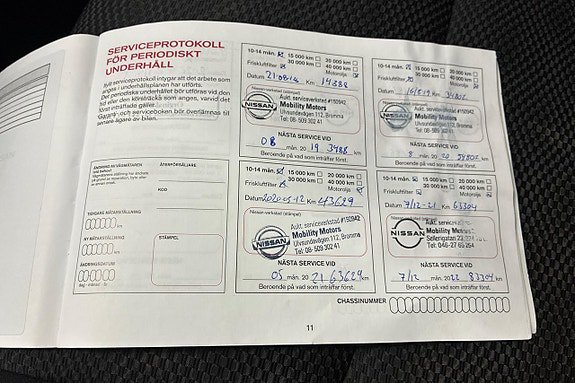 SERVICEPROTOKOLL
FÖR PERIODISKT
UNDERHÅLL
Ifylld serviceprotokoll intygar att det arbete som
anges i underhållsplanen har utförts.
Det periodiska underhållet bör utföras vid den
tid eller den körsträcka som anges, varvid det
först inträffade gäller.
Garanti- och serviceboken bör överlämnas till
senare ägare av bilen.
ÄNDRING AV VÄGMÄTAREN
ÅTERFÖRSÄLJARE
KOD
TIDIGARE MÄTARSTÄLLNING
km
NY MÄTARSTÄLLNING
km
ÄNDRINGSDATUM
dag - månad - år
STÄMPEL
10-14 mån. 15 000 km 20 000 km
30 000 km 40 000 km
Friskluftfilter Motorolja
Datum 21-08-18 Km 14388
Aukt. serviceverkstad #150942
NISSAN
Mobility Motors
Ulvsundavägen 112, Bromma
Tel: 08-509 302 41
NÄSTA SERVICE VID
08 mån. 20 19 3488 km
Beroende på vad som inträffar först.
10-14 mån. 15 000 km 20 000 km
30 000 km 40 000 km
Friskluftfilter Motorolja
Datum Km
Aukt. serviceverkstad #150942
NISSAN
Mobility Motors
Ulvsundavägen 112, Bromma
Tel: 08-509 302 41
NÄSTA SERVICE VID
8 mån. 20 20 km
Beroende på vad som inträffar först.
10-14 mån. 15 000 km 20 000 km
30 000 km 40 000 km
Friskluftfilter Motorolja
Datum 2020-05-12 Km 43629
Nissan-verkstad (stämpel)
Aukt. serviceverkstad #150942
NISSAN
Mobility Motors
Ulvsundavägen 112, Bromma
Tel: 08-509 302 41
NÄSTA SERVICE VID
05 mån. 20 21 63629 km
Beroende på vad som inträffar först.
10-14 mån. 15 000 km 20 000 km
30 000 km 40 000 km
Friskluftfilter Motorolja
Datum 7/12-21 Km 63304
Nissan-verkstad (stämpel)
Aukt. serviceverkstad
NISSAN
Mobility Motors
NÄSTA SERVICE VID
7/12 mån. 20 22 83304 km
Beroende på vad som inträffar först.
CHASSINUMMER
11